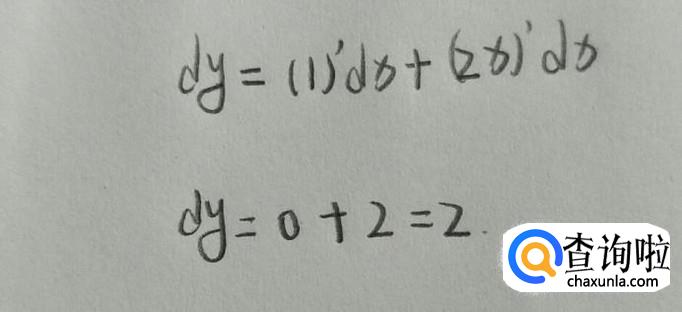 dy = (1)'dx + (2x)'dx
dy = 0 + 2 = 2.
查询啦
chaxunla.com